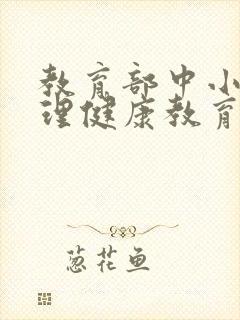 教育部中小
理健康教育
葱花鱼